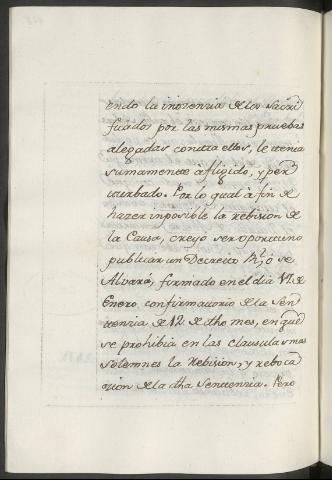 endo la inozenzia de los sacri
ficados por las mismas pruebas
alegadas contra ellos, le tenia
sumamente afligido, y per
turbado. Por lo qual à fin de
hazer inposible la rebision de
la Causa, creyó ser oportuno
publicar un Decreto Rl, ó se
Alvará, formado en el dia 17. de
Enero confirmatorio de la Sen
tenzia de 12. de dho mes, en que
se prohibia en las clausulas mas
solemnes la Rebision, y reboca
zion de la dha Sentenzia. Pero